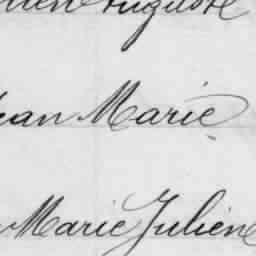 Auguste
Jean Marie
Marie Julien